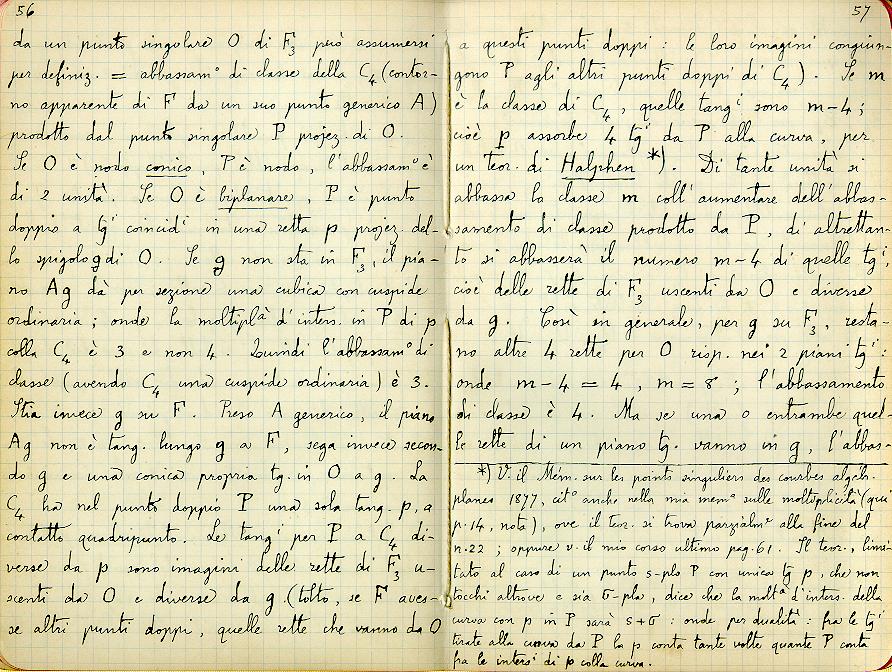 56
da un punto singolare O di F3 può assumersi
per definiz. = abbassam° di classe della C4 (contor-
no apparente di F da un suo punto generico A)
prodotto dal punto singolare P projez. di O.
Se O è nodo conico, P è nodo, l'abbassam° è
di 2 unità. Se O è biplanare, P è punto
doppio a tgi coincidi in una retta p projez. del-
lo spigolo g di O. Se g non sta in F3, il pia-
no Ag dà per sezione una cubica con cuspide
ordinaria; onde la moltiplà d'inters. in P di p
colla C4 è 3 e non 4. Quindi l'abbassam° di
classe (avendo C4 una cuspide ordinaria) è 3.
Stia invece g su F. Preso A generico, il piano
Ag non è tang. lungo g a F, sega invece secon-
do g e una conica propria tg. in O a g. La
C4 ha nel punto doppio P una sola tang. p, a
contatto quadripunto. Le tangi per P a C4 di-
verse da p sono imagini delle rette di F3 u-
scenti da O e diverse da g (tolto, se F aves-
se altri punti doppi, quelle rette che vanno da O
57
a questi punti doppi: le loro imagini congiun-
gono P agli altri punti doppi di C4). Se m
è la classe di C4, quelle tangi sono m-4;
cioè p assorbe 4 tgi da P alla curva, per
un teor. di Halphen *). Di tante unità si
abbassa la classe m coll'aumentare dell'abbas-
samento di classe prodotto da P, di altrettan-
to si abbasserà il numero m-4 di quelle tgi,
cioè delle rette di F3 uscenti da O e diverse
da g. Così in generale, per g su F3, resta-
no altre 4 rette per O risp. nei 2 piani tgi:
onde m-4=4, m=8; l'abbassamento
di classe è 4. Ma se una o entrambe quel-
le rette di un piano tg. vanno in g, l'abbas-
*) V. il Mém. sur les points singuliers des courbes algéb.
planes 1877, cit° anche nella mia mema sulle moltiplicità (qui
p.14, nota), ove il teor. si trova parzialmte alla fine del
n.22; oppure v. il mio corso ultimo pag. 61. Il teor., limi-
tato al caso di un punto s-plo P con unica tg p, che non
tocchi altrove e sia σ-pla, dice che la molta d'inters. della
curva con p in P sarà s+σ: onde per dualità: fra le tgi
tirate alla curva da P la p conta tante volte quante P conta
fra le intersi di p colla curva.